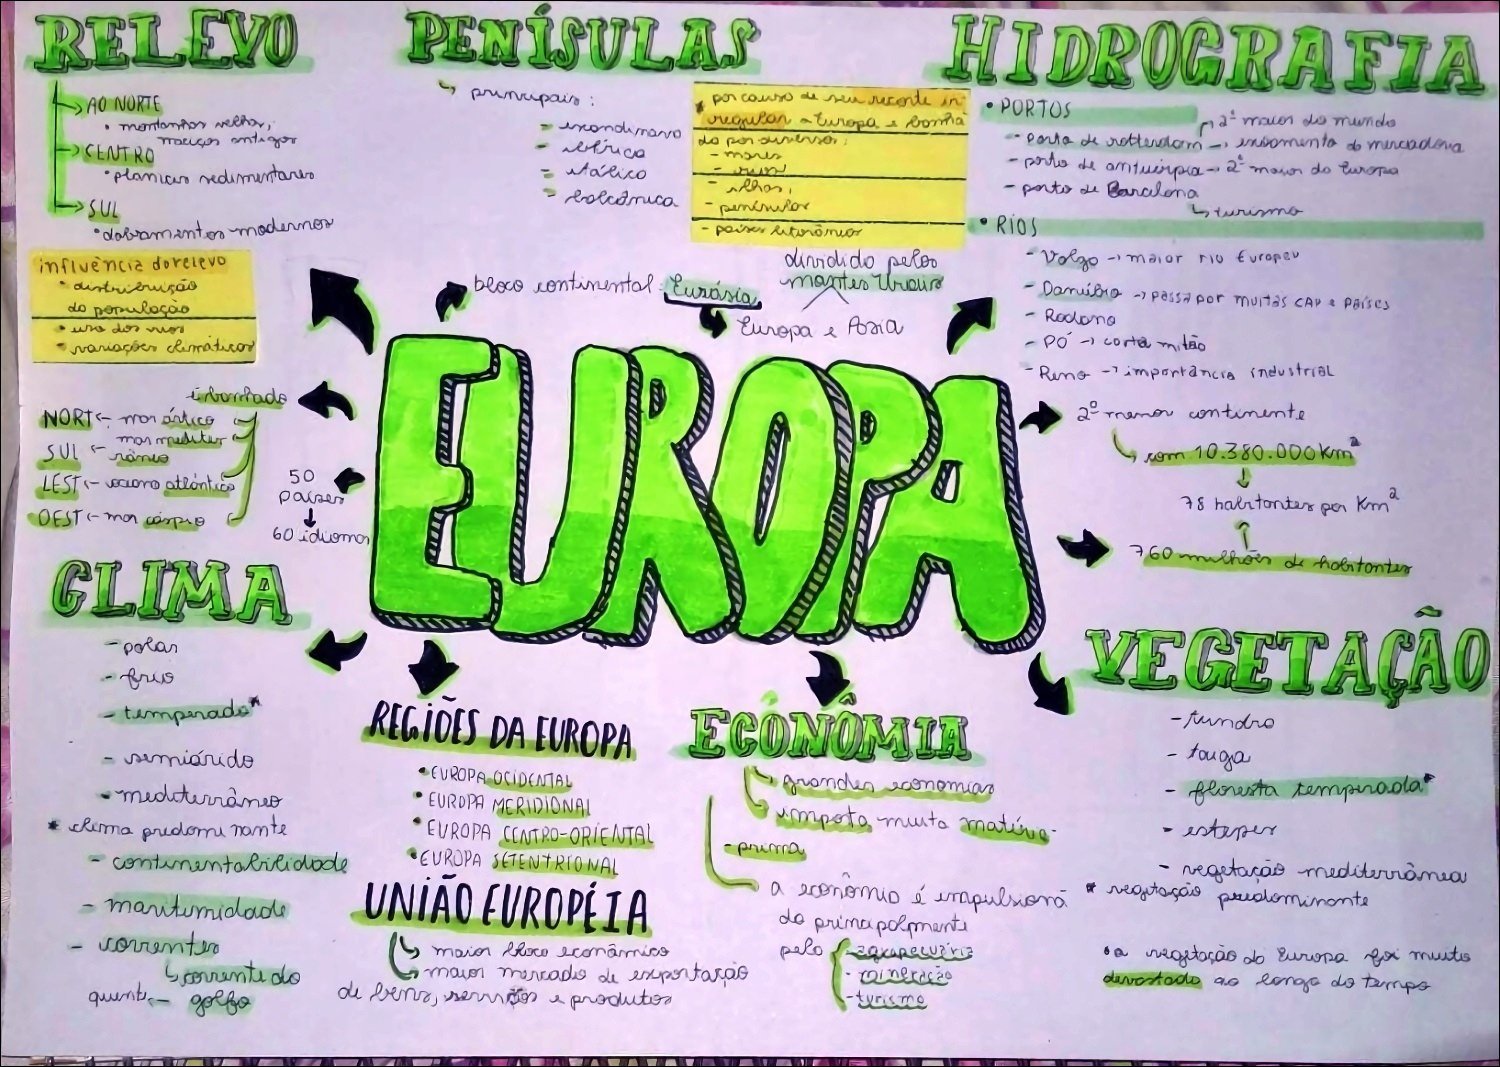 RELEVO
AO NORTE
• montanhas velhas,
maciços antigos
CENTRO
• planícies sedimentares
SUL
• dobramentos modernos
influência do relevo
• distribuição
da população
• uso dos rios
• variações climáticas
PENÍSULAS
principais:
- escandinava
- ibérica
- itálica
- balcânica
* por causa de seu recorte ir-
regular a Europa é banha
da por diversos:
- mares
- rios
- ilhas,
- penínsulas
- países litorâneos
HIDROGRAFIA
• PORTOS
2º maior do mundo
- porto de rotterdam → escoamento de mercadoria
- porto de antuérpia → 2º maior da Europa
- porto de Barcelona
turismo
• RIOS
- Volga → maior rio Europeu
- Danúbio → passa por muitas cap e países
- Rodano
- PÓ → corta milão
- Reno → importância industrial
bloco continental: Eurásia
dividido pelos
montes Urais
Europa e Ásia
EUROPA
é banhado
NORT ← mar ártico
SUL ← mar mediter
râneo
LEST ← oceano atlântico
OEST ← mar cáspio
50
países
60 idiomas
2º menor continente
com 10.380.000 Km²
78 habitantes por Km²
760 milhões de habitantes
CLIMA
- polar
- frio
- temperado*
- semiárido
- mediterrâneo
* clima predominante
- continentabilidade
- maritimidade
- correntes
corrente do
quent ← golfo
REGIÕES DA EUROPA
• EUROPA OCIDENTAL
• EUROPA MERIDIONAL
• EUROPA CENTRO-ORIENTAL
• EUROPA SETENTRIONAL
UNIÃO EUROPÉIA
maior bloco econômico
maior mercado de exportação
de bens, serviços e produtos
ECÔNÔMIA
grandes economias
importa muita matéria-
- prima
a ecônômia é impulsiona
da principalmente
pelo
- agropecuária
- mineração
- turismo
VEGETAÇÃO
- tundra
- taiga
- floresta temperada*
- estepes
- vegetação mediterrânea
* vegetação predominante
• a vegetação da Europa foi muito
devastada ao longo do tempo